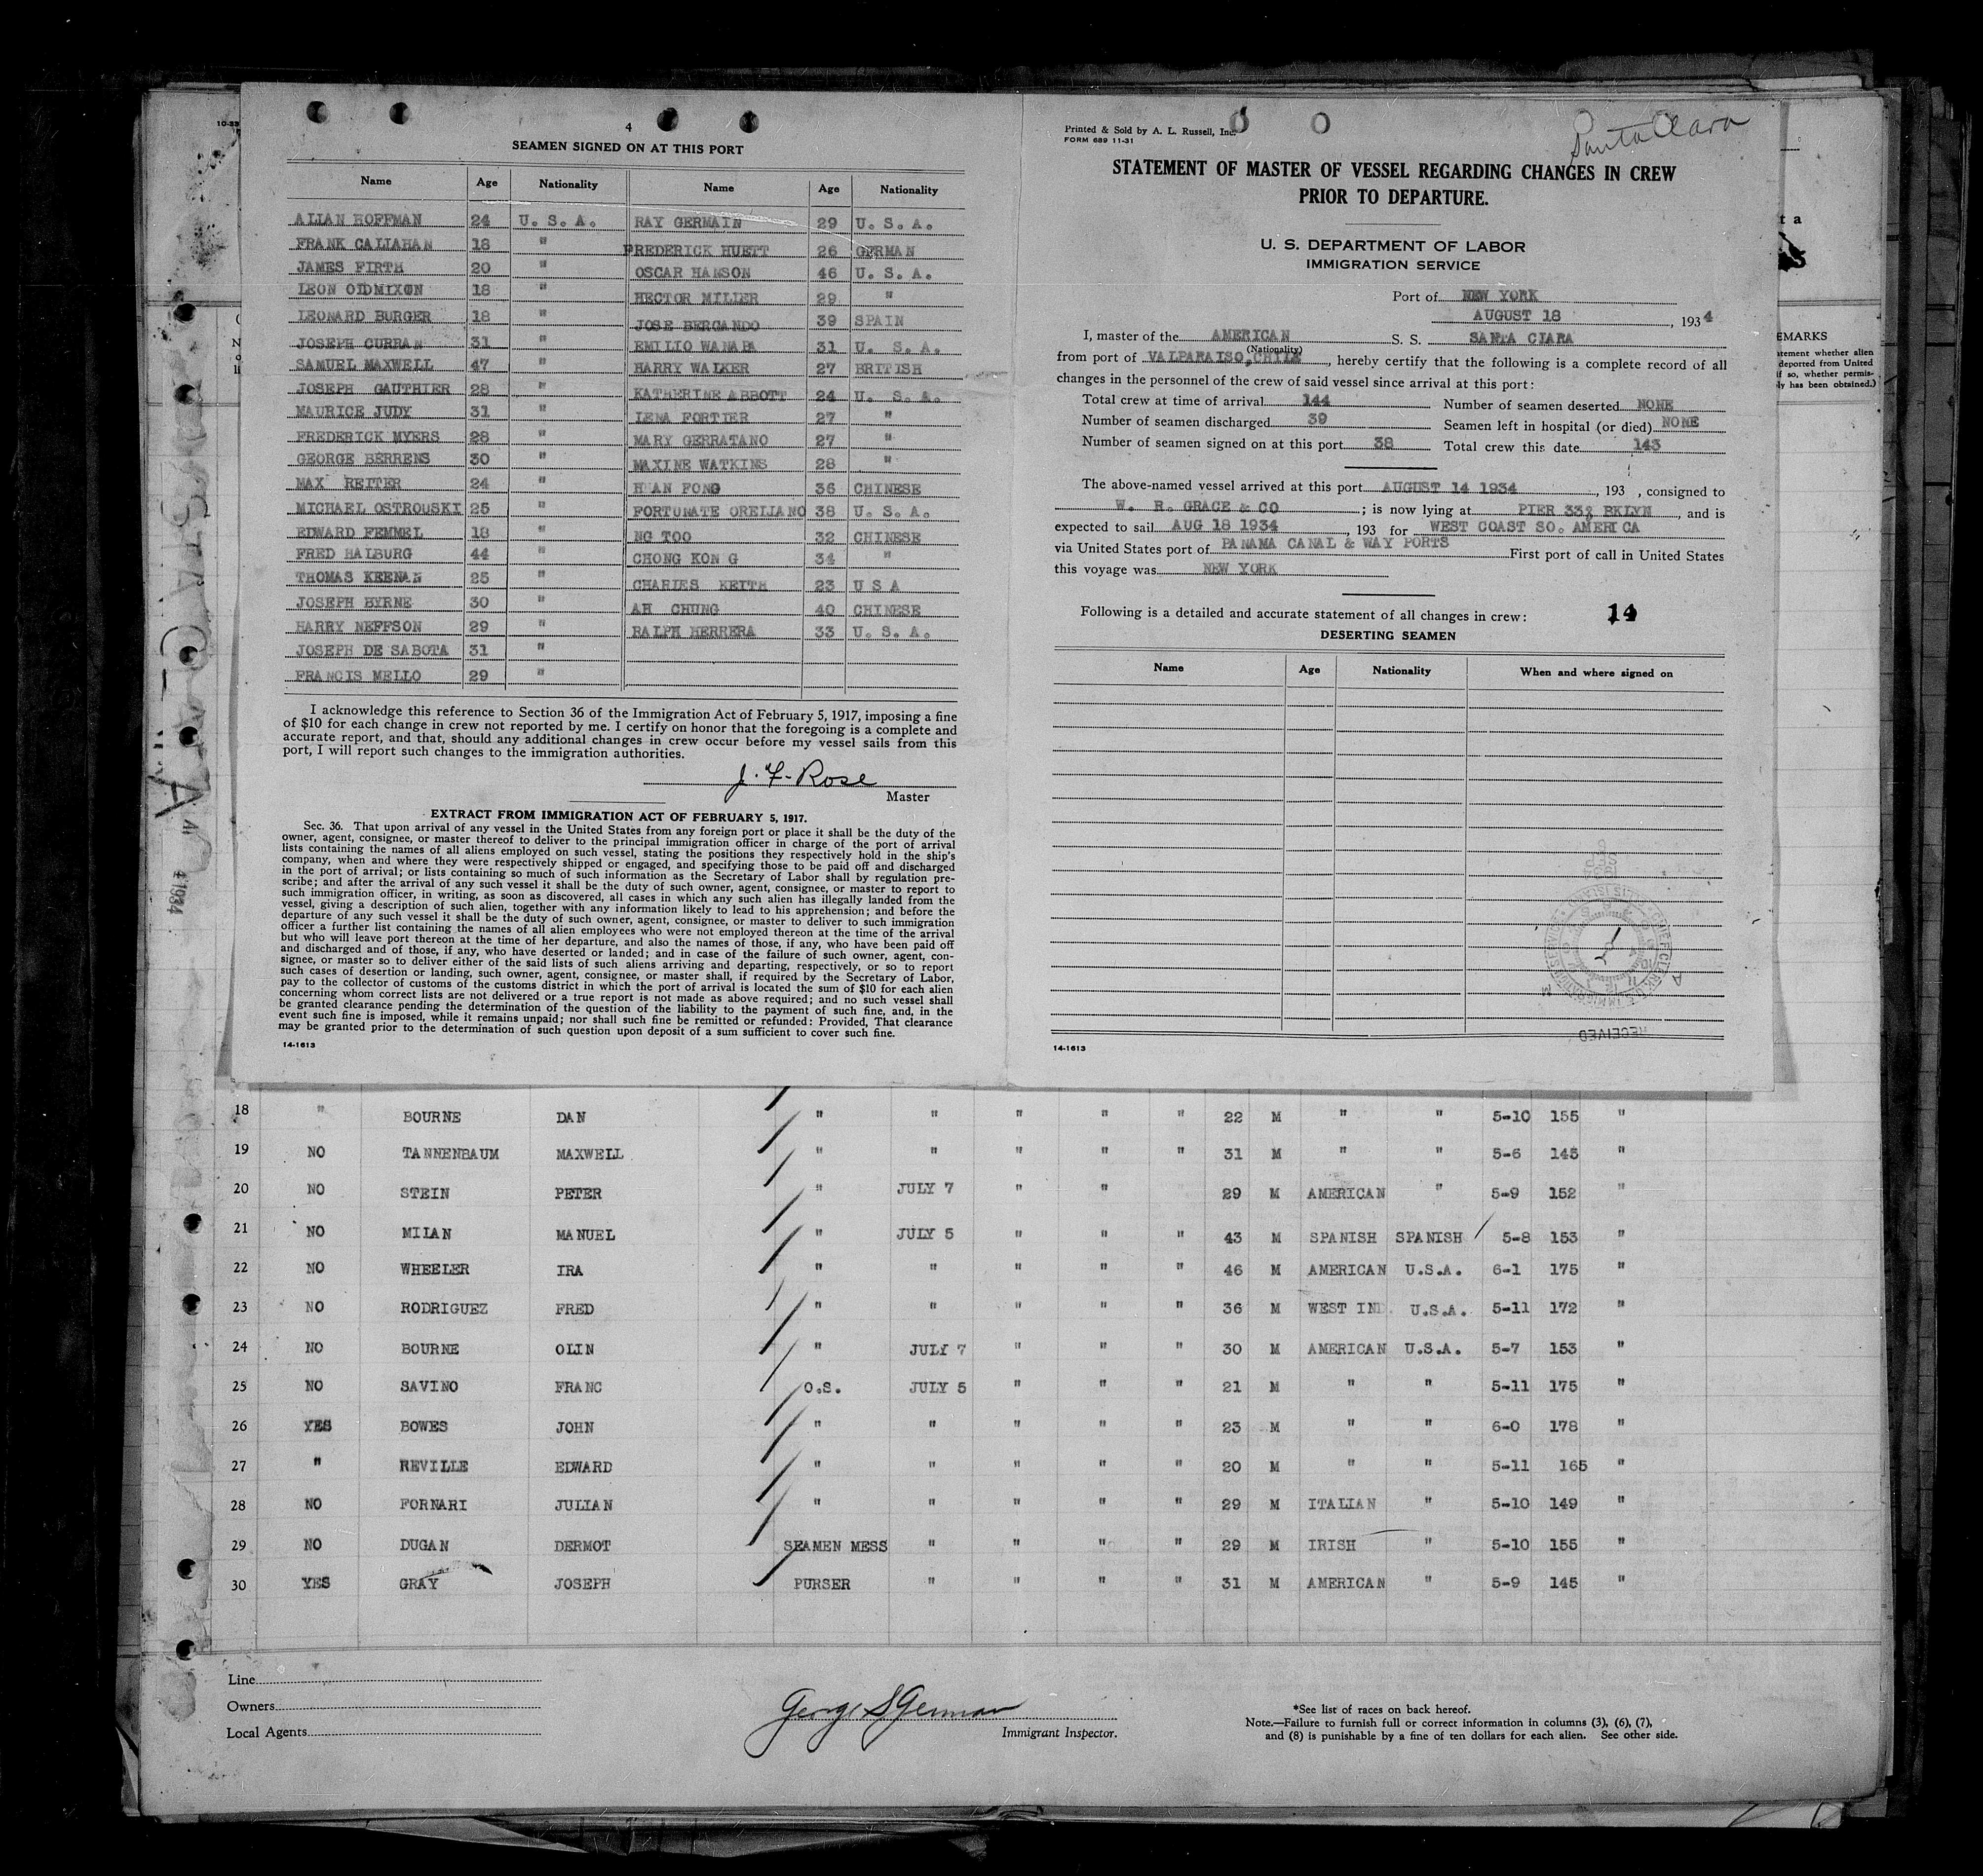 4
SEAMEN SIGNED ON AT THIS PORT
Name Age Nationality Name Age Nationality
ALLAN HOFFMAN 24 U. S. A. RAY GERMAIN 29 U. S. A.
FRANK CALLAHAN 18 " FREDERICK HUETT 26 GERMAN
JAMES FIRTH 20 " OSCAR HANSON 46 U. S. A.
LEON OIDMIXON 18 " HECTOR MILLER 29 "
LEONARD BURGER 18 " JOSE BERGANDO 39 SPAIN
JOSEPH CURRAN 31 " EMILIO WANAPA 31 U. S. A.
SAMUEL MAXWELL 47 " HARRY WALKER 27 BRITISH
JOSEPH GAUTHIER 28 " KATHERINE ABBOTT 24 U. S. A.
MAURICE JUDY 31 " LENA FORTIER 27 "
FREDERICK MYERS 28 " MARY GERRATANO 27 "
GEORGE BERRENS 30 " MAXINE WATKINS 28 "
MAX REITER 24 " FONG 36 CHINESE
MICHAEL OSTROUSKI 25 " FORTUNATE ORELLANO 38 U. S. A.
EDWARD FEMMEL 18 " NG TOO 32 CHINESE
FRED HALBURG 44 " CHONG KON G 34 "
THOMAS KEENAN 25 " CHARLES KEITH 23 U S A
JOSEPH BYRNE 30 " AH CHUNG 40 CHINESE
HARRY NEFFSON 29 " RALPH HERRERA 33 U. S. A.
JOSEPH DE SABOTA 31 "
FRANCIS MELLO 29 "
I acknowledge this reference to Section 36 of the Immigration Act of February 5, 1917, imposing a fine
of $10 for each change in crew not reported by me. I certify on honor that the foregoing is a complete and
accurate report, and that, should any additional changes in crew occur before my vessel sails from this
port, I will report such changes to the immigration authorities.
J. F. Rose
Master
EXTRACT FROM IMMIGRATION ACT OF FEBRUARY 5, 1917.
Sec. 36. That upon arrival of any vessel in the United States from any foreign port or place it shall be the duty of the
owner, agent, consignee, or master thereof to deliver to the principal immigration officer in charge of the port of arrival
lists containing the names of all aliens employed on such vessel, stating the positions they respectively hold in the ship's
company, when and where they were respectively shipped or engaged, and specifying those to be paid off and discharged
in the port of arrival; or lists containing so much of such information as the Secretary of Labor shall by regulation pre-
scribe; and after the arrival of any such vessel it shall be the duty of such owner, agent, consignee, or master to report to
such immigration officer, in writing, as soon as discovered, all cases in which any such alien has illegally landed from the
vessel, giving a description of such alien, together with any information likely to lead to his apprehension; and before the
departure of any such vessel it shall be the duty of such owner, agent, consignee, or master to deliver to such immigration
officer a further list containing the names of all alien employees who were not employed thereon at the time of the arrival
but who will leave port thereon at the time of her departure, and also the names of those, if any, who have been paid off
and discharged and of those, if any, who have deserted or landed; and in case of the failure of such owner, agent, con-
signee, or master so to deliver either of the said lists of such aliens arriving and departing, respectively, or so to report
such cases of desertion or landing, such owner, agent, consignee, or master shall, if required by the Secretary of Labor,
pay to the collector of customs of the customs district in which the port of arrival is located the sum of $10 for each alien
concerning whom correct lists are not delivered or a true report is not made as above required; and no such vessel shall
be granted clearance pending the determination of the question of the liability to the payment of such fine, and, in the
event such fine is imposed, while it remains unpaid; nor shall such fine be remitted or refunded: Provided, That clearance
may be granted prior to the determination of such question upon deposit of a sum sufficient to cover such fine.
14-1613
Santa Clara
Printed & Sold by A. L. Russell, Inc.
FORM 689 11-31
STATEMENT OF MASTER OF VESSEL REGARDING CHANGES IN CREW
PRIOR TO DEPARTURE.
U. S. DEPARTMENT OF LABOR
IMMIGRATION SERVICE
Port of NEW YORK
AUGUST 18, 1934
I, master of the AMERICAN S. S. SANTA CLARA
(Nationality)
from port of VALPARAISO, CHILE, hereby certify that the following is a complete record of all
changes in the personnel of the crew of said vessel since arrival at this port:
Total crew at time of arrival 144 Number of seamen deserted NONE
Number of seamen discharged 39 Seamen left in hospital (or died) NONE
Number of seamen signed on at this port 38 Total crew this date 143
The above-named vessel arrived at this port AUGUST 14 1934, 193 , consigned to
W. R. GRACE & CO ; is now lying at PIER 33 BKLYN, and is
expected to sail AUG 18 1934, 193 for WEST COAST SO. AMERICA
via United States port of PANAMA CANAL & WAY PORTS First port of call in United States
this voyage was NEW YORK
Following is a detailed and accurate statement of all changes in crew: 14
DESERTING SEAMEN
Name Age Nationality When and where signed on
RECEIVED
14-1613
EMARKS
atement whether alien
deported from United
if so, whether permis-
ly has been obtained.)
1934
18 " BOURNE DAN " " " " " 22 M " " 5-10 155 "
19 NO TANNENBAUM MAXWELL " " " " " 31 M " " 5-6 145 "
20 NO STEIN PETER " JULY 7 " " " 29 M AMERICAN " 5-9 152 "
21 NO MILAN MANUEL " JULY 5 " " " 43 M SPANISH SPANISH 5-8 153 "
22 NO WHEELER IRA " " " " " 46 M AMERICAN U.S.A. 6-1 175 "
23 NO RODRIGUEZ FRED " " " " " 36 M WEST IND. U.S.A. 5-11 172 "
24 NO BOURNE OLIN " JULY 7 " " " 30 M AMERICAN U.S.A. 5-7 153 "
25 NO SAVINO FRANC O.S. JULY 5 " " " 21 M " " 5-11 175 "
26 YES BOWES JOHN " " " " " 23 M " " 6-0 178 "
27 " REVILLE EDWARD " " " " " 20 M " " 5-11 165 "
28 NO FORNARI JULIAN " " " " " 29 M ITALIAN " 5-10 149 "
29 NO DUGAN DERMOT SEAMEN MESS " " " " 29 M IRISH " 5-10 155 "
30 YES GRAY JOSEPH PURSER " " " " 31 M AMERICAN " 5-9 145 "
Line
Owners
Local Agents
George S German
Immigrant Inspector.
*See list of races on back hereof.
Note.—Failure to furnish full or correct information in columns (3), (6), (7),
and (8) is punishable by a fine of ten dollars for each alien. See other side.